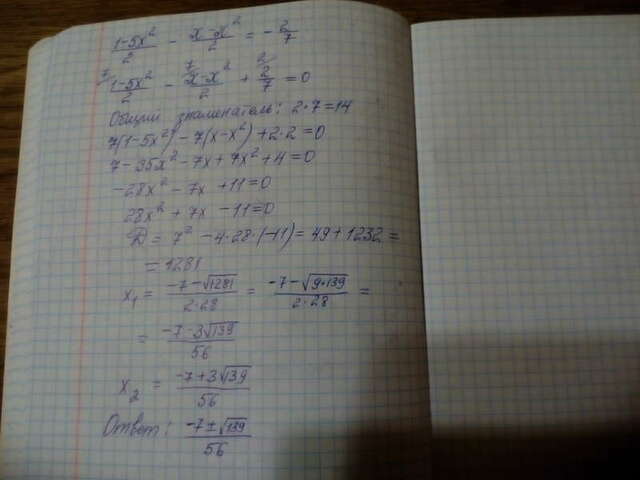 (1-5x²)/2 - (x-x²)/2 = -2/7
⁷/ (1-5x²)/2 - ⁷/ (x-x²)/2 + ²/ 2/7 = 0
Общий знаменатель: 2·7=14
7(1-5x²) - 7(x-x²) + 2·2 = 0
7-35x²-7x+7x²+4=0
-28x²-7x+11=0
28x²+7x-11=0
D = 7² - 4·28·(-11) = 49+1232 =
= 1281
x₁ = (-7-√1281)/(2·28) = (-7-√(9·139))/(2·28) =
= (-7-3√139)/56
x₂ = (-7+3√139)/56
Ответ: (-7±√139)/56